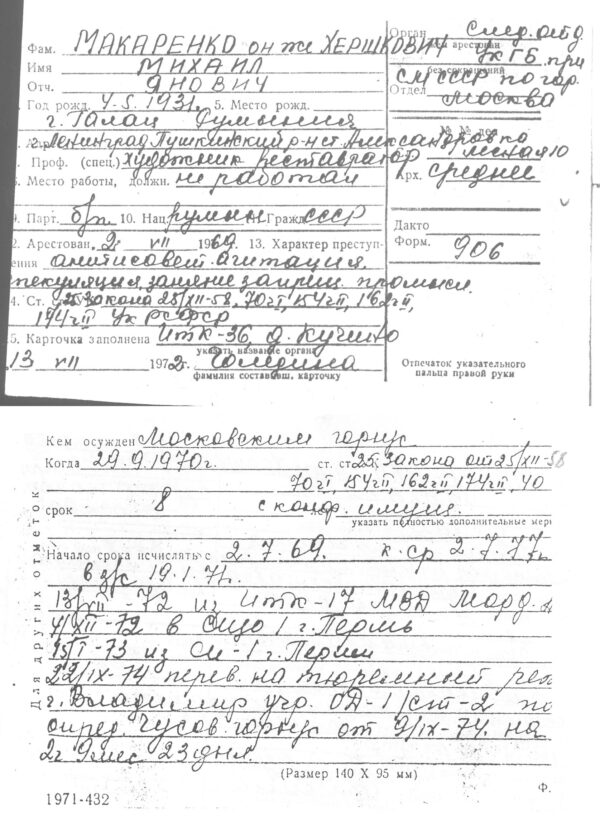 Фам. МАКАРЕНКО он же ХЕРШКОВИЧ
Имя МИХАИЛ
Отч. ЯНОВИЧ
Год рожд. 4-5. 1931. 5. Место рожд.
г. Галац Румыния
г. Ленинград Пушкинский р-н ст. Александровка
Проф. (спец.) художник реставратор
Место работы, должн. не работал
9. Парт. б/п 10. Нац. румын Гражд. СССР
2. Арестован 2 VII 1969. 13. Характер преступ-
ения антисовет. агитация,
спекуляция, занятие запрещ. промысл.
4. Ст. 25 Закона 25/XII-58, 70 ч I, 154 ч II, 162 ч II,
174 ч II УК РСФСР
5. Карточка заполнена ИТК-36, д. Кучино
указать название органа
13 VII 1972 г.
фамилия составивш. карточку
Орган След. отд.
чем арестован
УКГБ при
без сокращений
СМ СССР по гор.
Отдел Москва
№ № дел
Лесная 10
Арх. среднее
Дакто
Форм. 906
Отпечаток указательного
пальца правой руки
Кем осужден Московским горсуд
Когда 29.9.1970 г. ст. ст. 25 Закона от 25/XII-58
70 ч I, 154 ч II, 162 ч II, 174 ч II, 40
срок 8 с конф. имущ.
указать полностью дополнительные мер
Начало срока исчислять с 2.7.69. к. ср 2.7.77г.
в з/с 19.1.71г.
13/XII-72 из ИТК-17 МВД Морд.
4/XII-72 в СИЗО 1 г. Пермь
15/I-73 из СИ-1 г. Перми
22/IX-74 перев. на тюремный реж
г. Владимир учр. ОД-1/СТ-2 по
опред. Чусов. горсуд от 9/IX-74. на
2г 9мес 23 дня.
Для других отметок
(Размер 140 X 95 мм)
Ф.
1971-432